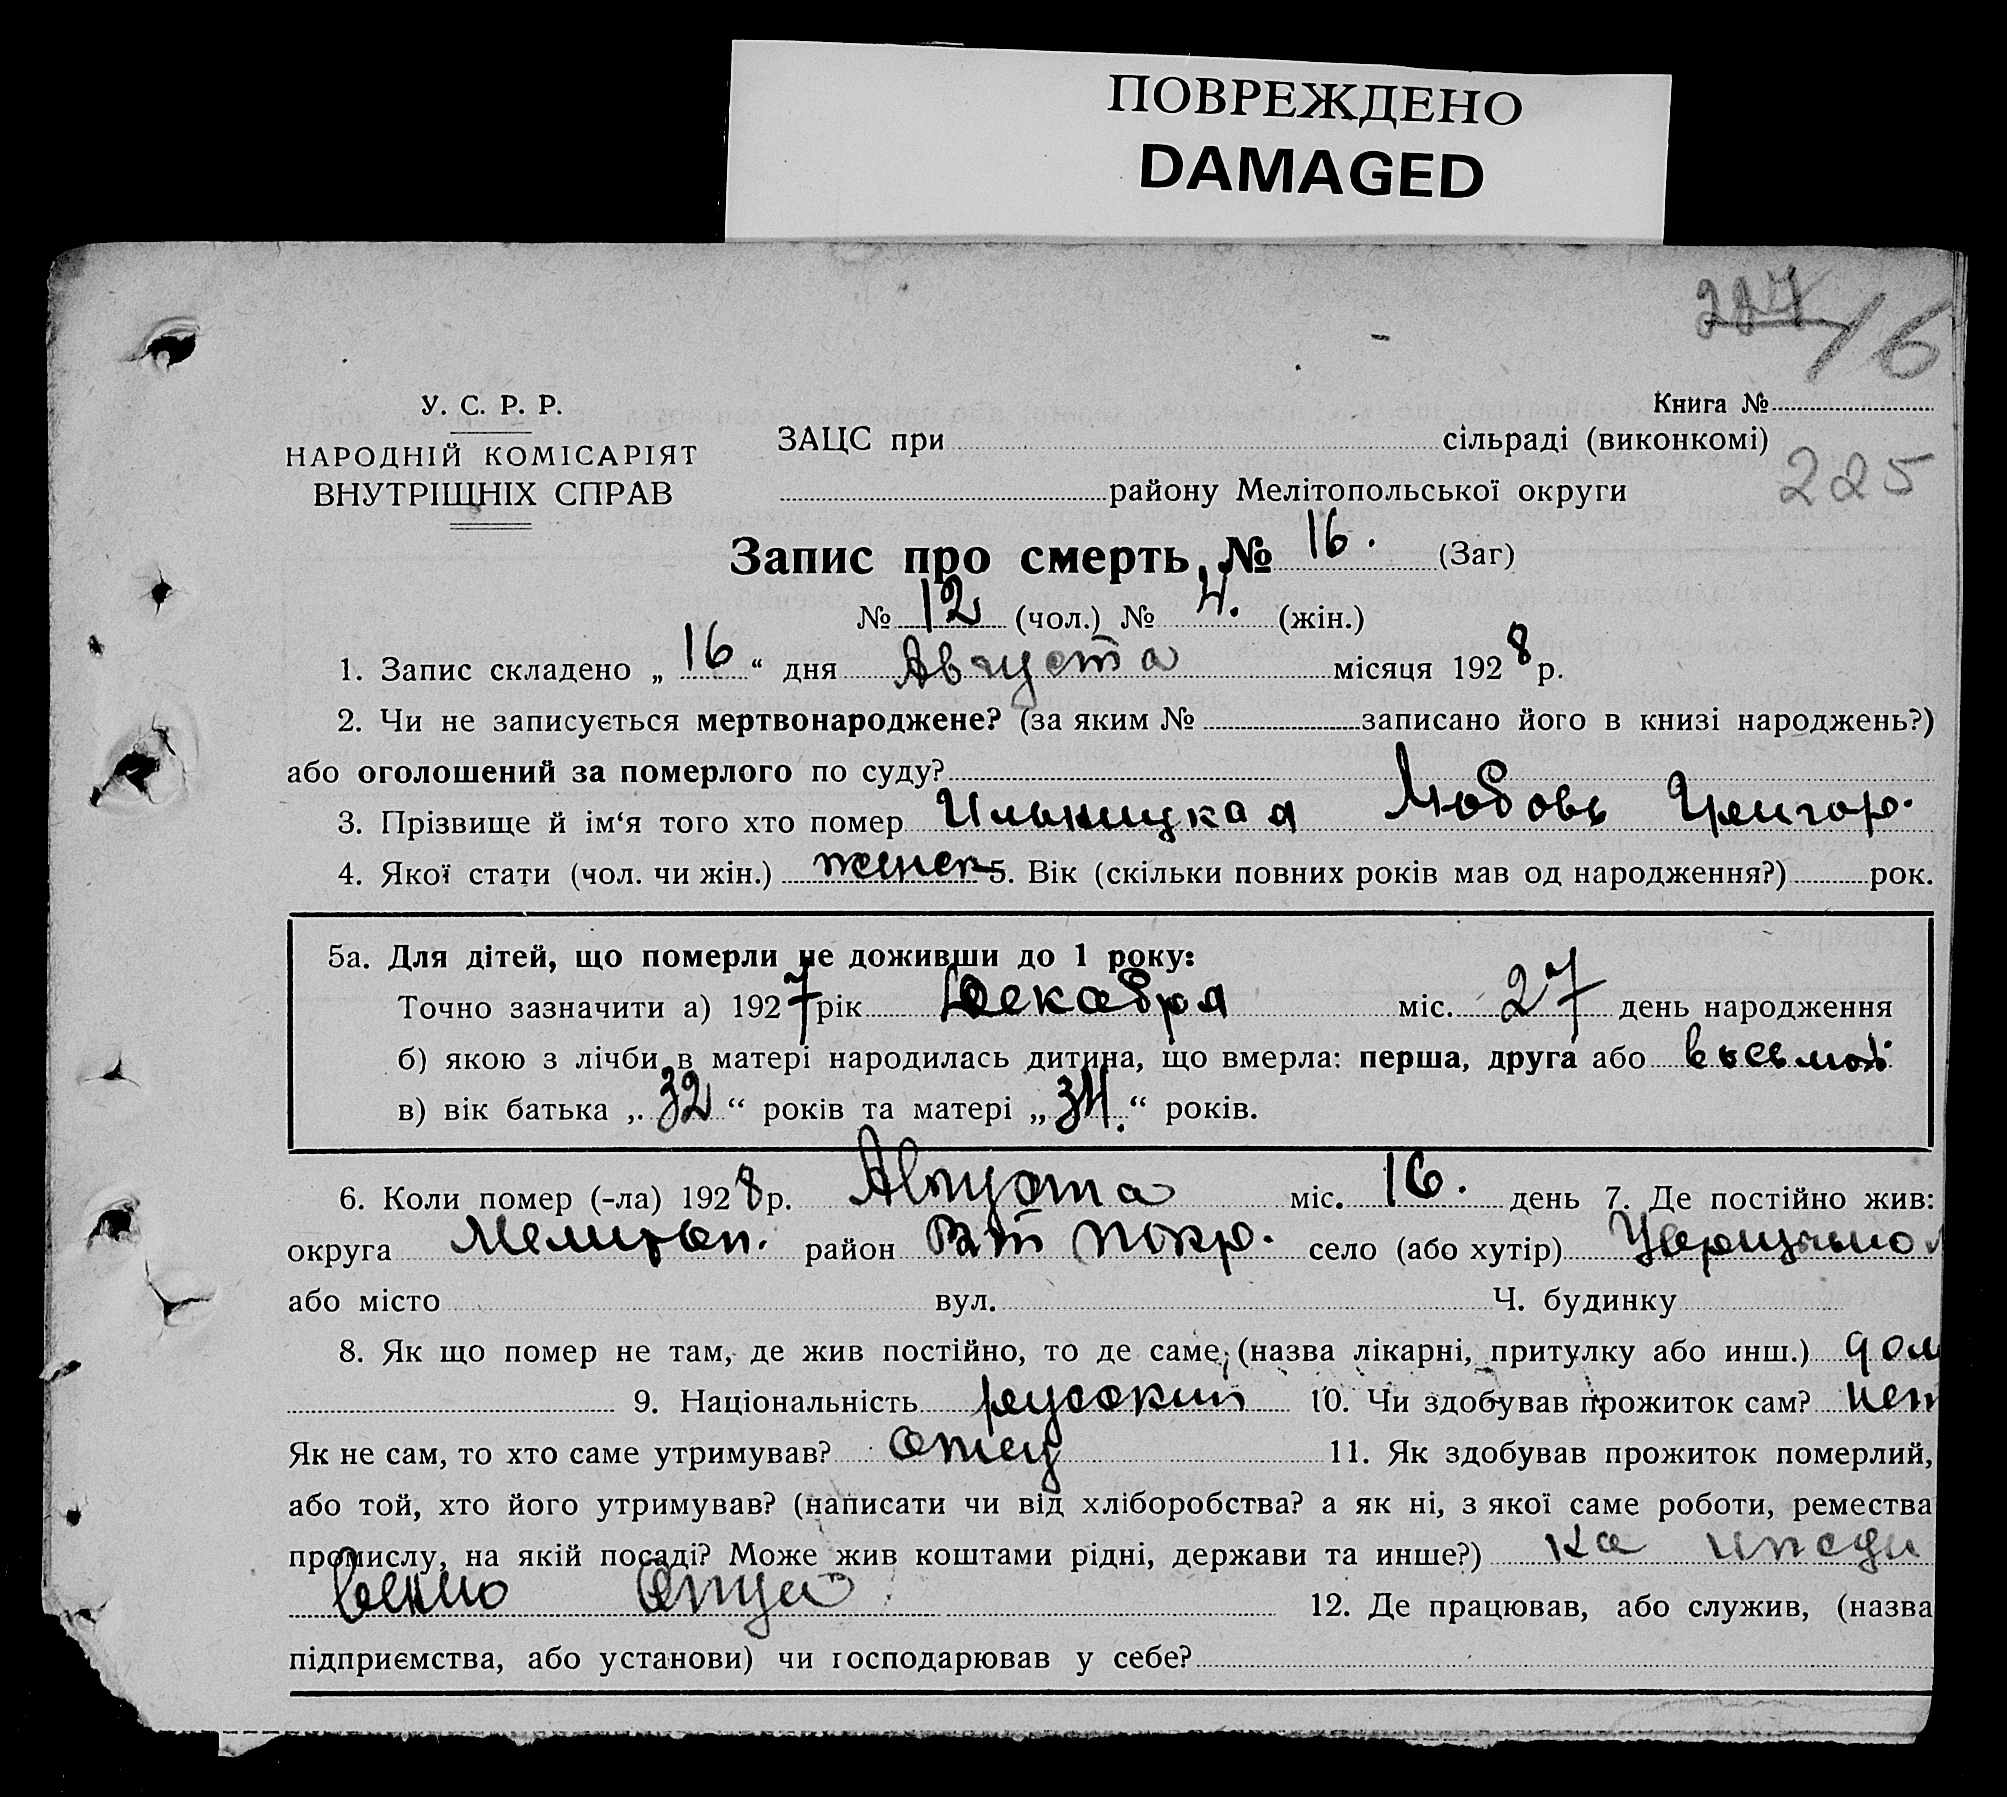 ПОВРЕЖДЕНО
DAMAGED
227 16
У. С. Р. Р.
Книга №
НАРОДНІЙ КОМІСАРІЯТ
ВНУТРІШНІХ СПРАВ
ЗАЦС при сільраді (виконкомі)
району Мелітопольської округи
225
Запис про смерть, № 16. (Заг)
№ 12 (чол.) № 4. (жін.)
1. Запис складено „ 16 “ дня Августа місяця 1928 р.
2. Чи не записується мертвонароджене? (за яким № записано його в книзі народжень?)
або оголошений за померлого по суду?
3. Прізвище й ім‘я того хто помер Ильницкая Любовь Григор.
4. Якої стати (чол. чи жін.) женск 5. Вік (скільки повних років мав од народження?) рок.
5а. Для дітей, що померли не доживши до 1 року:
Точно зазначити а) 1927 рік Декабря міс. 27 день народження
б) якою з лічби в матері народилась дитина, що вмерла: перша, друга або восьмой
в) вік батька „ 32 “ років та матері „ 34. “ років.
6. Коли помер (-ла) 1928 р. Августа міс. 16. день 7. Де постійно жив:
округа Мелитоп. район покр. село (або хутір)
або місто вул. Ч. будинку
8. Як що помер не там, де жив постійно, то де саме, (назва лікарні, притулку або инш.) дом
9. Національність русский 10. Чи здобував прожиток сам? нет
Як не сам, то хто саме утримував? отец 11. Як здобував прожиток померлий,
або той, хто його утримував? (написати чи від хліборобства? а як ні, з якої саме роботи, ремества
промислу, на якій посаді? Може жив коштами рідні, держави та инше?) на ижди
вению отца 12. Де працював, або служив, (назва
підприємства, або установи) чи господарював у себе?